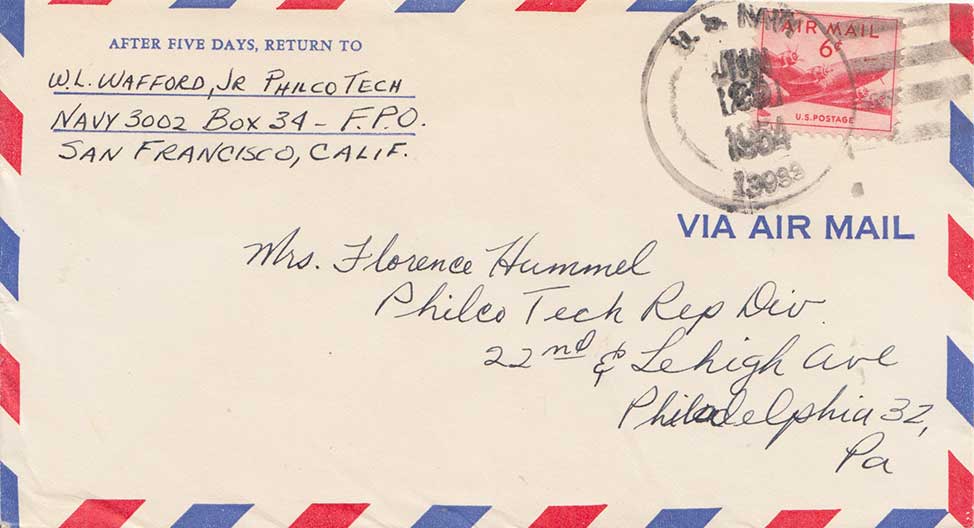 AFTER FIVE DAYS, RETURN TO
W.L. WAFFORD, JR PHILCO TECH
NAVY 3002 BOX 34 - F.P.O.
SAN FRANCISCO, CALIF.
U.S. NAVY
JUN
1954
AIR MAIL
6¢
U.S. POSTAGE
VIA AIR MAIL
Mrs. Florence Hummel
Philco Tech Rep Div.
22nd & Lehigh Ave
Philadelphia 32,
Pa